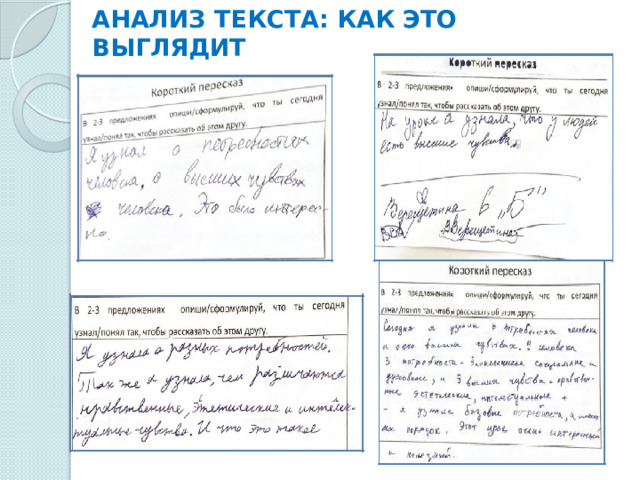 АНАЛИЗ ТЕКСТА: КАК ЭТО
ВЫГЛЯДИТ
Короткий пересказ
В 2-3 предложениях опиши/сформулируй, что ты сегодня
узнал/понял так, чтобы рассказать об этом другу.
Я узнал о потребностях
человека, о высших чувствах
человека. Это было интерес-
но.
Короткий пересказ
В 2-3 предложениях опиши/сформулируй, что ты сегодня
узнал/понял так, чтобы рассказать об этом другу.
На уроке я узнала, что у людей
есть высшие чувства.
6 „Б"
В 2-3 предложениях опиши/сформулируй, что ты сегодня
узнал/понял так, чтобы рассказать об этом другу.
Я узнала о разных потребностей.
Так же я узнала, чем различаются
нравственные, эстетические и интелек-
туальные чувства. И что это такое
Короткий пересказ
В 2-3 предложениях опиши/сформулируй, что ты сегодня
узнал/понял так, чтобы рассказать об этом другу.
Сегодня я узнала о потребностях человека
и о его высших чувствах. У человека
3 потребности - социальные и
духовные, и 3 высших чувства - нравствен-
ные эстетические, +
- я узнала базовые потребности, а
их порядок. Этот урок очень интересный
и